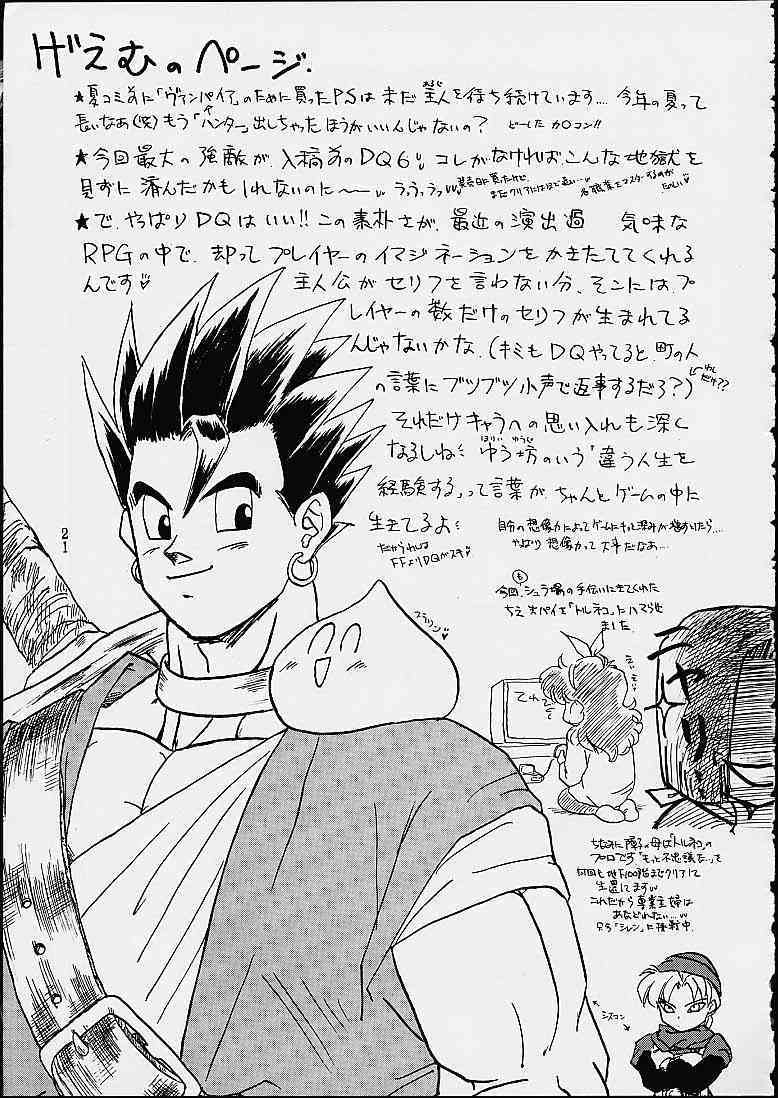 げえむのページ.
★夏コミ前に「ヴァンパイア」のために買ったPSは未だ主人を待ち続けています.... 今年の夏って
あるじ
長いなあ(笑)もう「ハンター」出しちゃったほうがいいんじゃないの? どーした カ○コン!!
★今回最大の強敵が、入稿前のDQ6!! コレがなければこんな地獄を
見ずに済んだかもしれないのに〜 うふうふっ
発売日に買ったけど、
まだクリアにはほど遠い…
★で、やっぱりDQはいい!! この素朴さが、最近の演出過 気味な
RPGの中で、却ってプレイヤーのイマジネーションをかきたててくれる
んです♡
主人公がセリフを言わない分、そこには、プ
レイヤーの数だけのセリフが生まれてる
んじゃないかな。(キミもDQやってると、町の人
の言葉にブツブツ小声で返事するだろ?)
わたしだけ??
それだけキャラへの思い入れも深く
なるしね
ほりい ゆうじ
ゆう坊のいう「違う人生を
経験する」って言葉が、ちゃんとゲームの中に
生きてるよ
だからわれは
FFよりDQがスキ♡
自分の想像力によってゲームにもっと深みが増すんなら…
やっぱり想像力って大事だなあ…
21
今回、シュラ場の手伝いにきてくれた
も
ちえ
を「トルネコ」にハマらせ
ました
プルリン♡
てれ
ニヤリ
ちなみに
の母は「トルネコ」の
プロです「もっと不思議な」って
何回も地下100階までクリアして
生還してます
これだから専業主婦は
あなどれない…
只今「シレン」に挑戦中.
シスコン